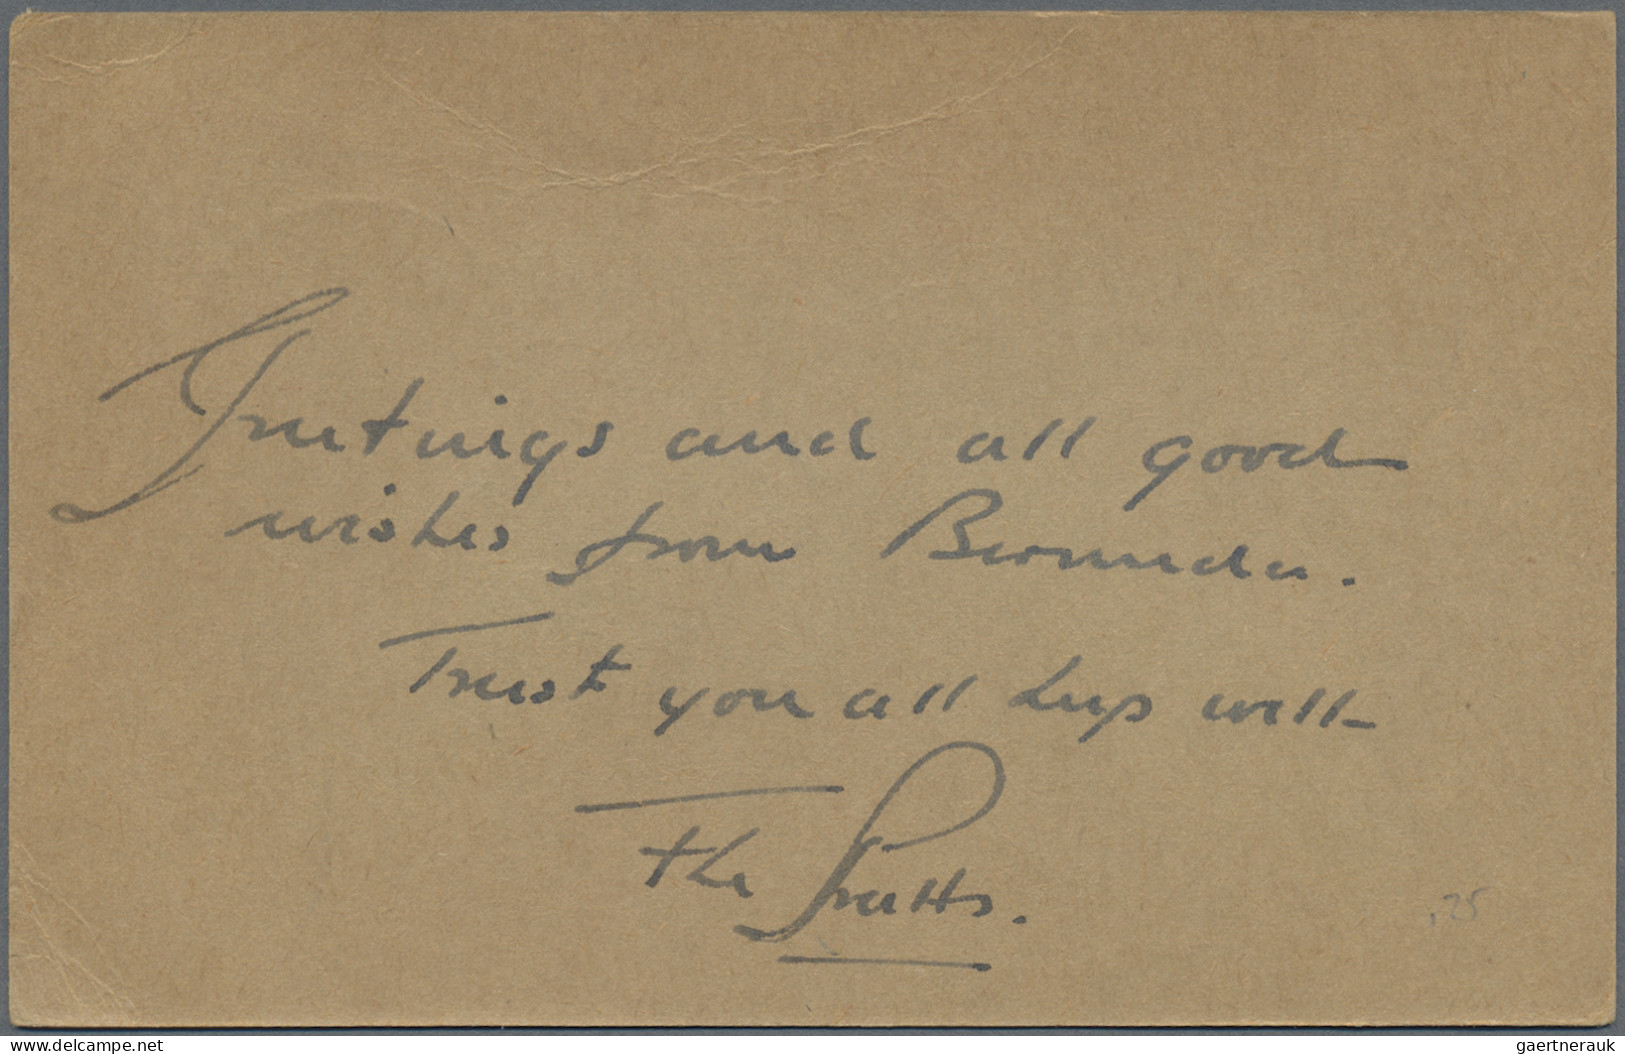 Greetings and all good
wishes from Bermuda.
Trust you all keep well -
The Pratts.
.75
www.delcampe.net
gaertnerauk